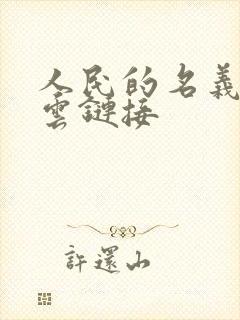 人民的名義
雲鏈接
許還山